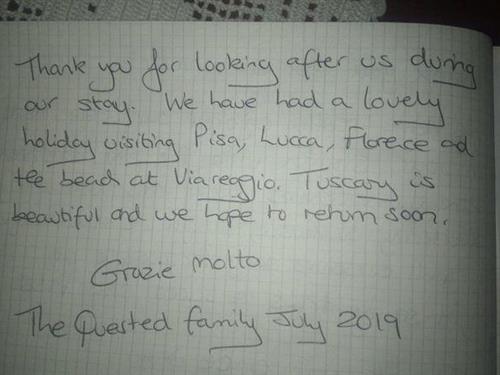 Thank you for looking after us during
our stay. We have had a lovely
holiday visiting Pisa, Lucca, Florece ad
the beach at Viareggio. Tuscany is
beautiful and we hope to return soon.
Grazie molto
The Quested family July 2019